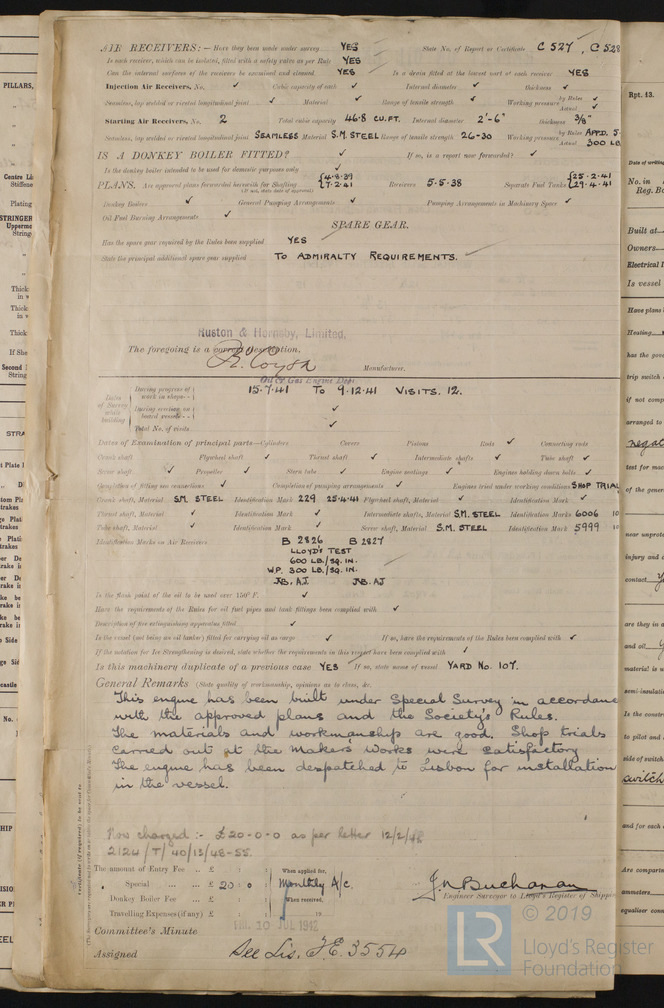 AIR RECEIVERS:— Have they been made under survey YES State No. of Report or Certificate C 527, C 528
Is each receiver, which can be isolated, fitted with a safety valve as per Rule YES
Can the internal surfaces of the receivers be examined and cleaned YES Is a drain fitted at the lowest part of each receiver YES
Injection Air Receivers, No. ✓ Cubic capacity of each ✓ Internal diameter ✓ thickness ✓
Seamless, lap welded or riveted longitudinal joint ✓ Material ✓ Range of tensile strength ✓ Working pressure by Rules ✓ Actual ✓
Starting Air Receivers, No. 2 Total cubic capacity 46.8 CU.FT. Internal diameter 2'-6" thickness 3/8"
Seamless, lap welded or riveted longitudinal joint SEAMLESS Material S.M. STEEL Range of tensile strength 26-30 Working pressure by Rules APPD. Actual 300 LB.
IS A DONKEY BOILER FITTED? ✓ If so, is a report now forwarded? ✓
Is the donkey boiler intended to be used for domestic purposes only ✓
PLANS. Are approved plans forwarded herewith for Shafting 4.8.39 7.2.41 Receivers 5.5.38 Separate Fuel Tanks 25.2.41 29.4.41
(If not, state date of approval)
Donkey Boilers ✓ General Pumping Arrangements ✓ Pumping Arrangements in Machinery Space ✓
Oil Fuel Burning Arrangements ✓
SPARE GEAR.
Has the spare gear required by the Rules been supplied YES
State the principal additional spare gear supplied TO ADMIRALTY REQUIREMENTS.
Ruston & Hornsby, Limited,
The foregoing is a correct description,
Manufacturer.
Oil & Gas Engine Dept.
Dates of Survey while building
During progress of work in shops - - 15.7.41 TO 9.12.41 VISITS. 12.
During erection on board vessel - - ✓
Total No. of visits ✓
Dates of Examination of principal parts—Cylinders Covers Pistons Rods ✓ Connecting rods
Crank shaft Flywheel shaft ✓ Thrust shaft ✓ Intermediate shafts ✓ Tube shaft ✓
Screw shaft ✓ Propeller ✓ Stern tube ✓ Engine seatings ✓ Engines holding down bolts ✓
Completion of fitting sea connections ✓ Completion of pumping arrangements ✓ Engines tried under working conditions SHOP TRIAL
Crank shaft, Material S.M. STEEL Identification Mark 229 25.4.41 Flywheel shaft, Material ✓ Identification Mark ✓
Thrust shaft, Material ✓ Identification Mark ✓ Intermediate shafts, Material S.M. STEEL Identification Marks 6006 10
Tube shaft, Material ✓ Identification Mark ✓ Screw shaft, Material S.M. STEEL Identification Mark 5999 10
Identification Marks on Air Receivers B 2826 B 2827
LLOYD'S TEST
600 LB./SQ. IN.
W.P. 300 LB./SQ. IN.
Is the flash point of the oil to be used over 150° F. ✓
Have the requirements of the Rules for oil fuel pipes and tank fittings been complied with ✓
Description of fire extinguishing apparatus fitted ✓
Is the vessel (not being an oil tanker) fitted for carrying oil as cargo ✓ If so, have the requirements of the Rules been complied with ✓
If the notation for Ice Strengthening is desired, state whether the requirements in this respect have been complied with ✓
Is this machinery duplicate of a previous case YES If so, state name of vessel YARD No. 107.
General Remarks (State quality of workmanship, opinions as to class, &c.
This engine has been built under Special Survey in accordance
with the approved plans and the Society's Rules.
The materials and workmanship are good. Shop trials
carried out at the Makers Works were satisfactory
The engine has been despatched to Lisbon for installation
in the vessel.
Now charged :- £20-0-0 as per letter 12/2/48
2124/T/40/13/48-55.
The amount of Entry Fee .. £ : : When applied for,
Special ... ... £ 20 : 0 : Monthly A/c.
Donkey Boiler Fee ... £ : : When received,
Travelling Expenses (if any) £ : : 19
J. N. Buchanan
Engineer Surveyor to Lloyd's Register of Shipping
Committee's Minute 10 JUL 1942
Assigned See Lis. F.E. 3554
© 2019
LR
Lloyd's Register
Foundation